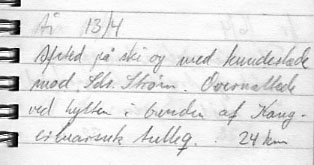 År 13/4
Afsted på ski og med hundeslæde
mod Sdr. Strøm. Overnattede
ved hytten i bunden af Kang-
erluarsuk tulleq. 24 km